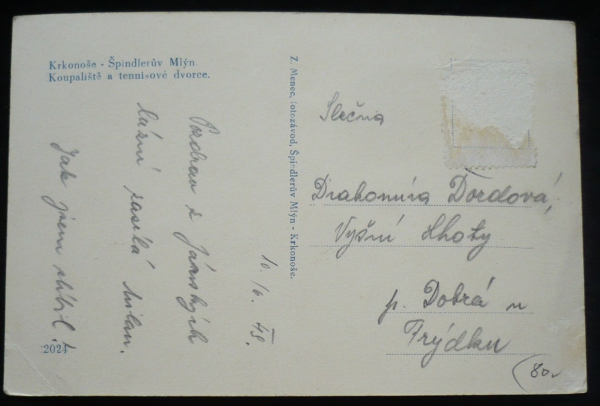 Krkonoše - Špindlerův Mlýn.
Koupaliště a tennisové dvorce.
Pozdrav z Jánských
lázní zasílá Milan.
Jak jsem slíbil!
10. 48.
2024
Z. Menec, fotozávod, Špindlerův Mlýn - Krkonoše.
Slečna
Drahomíra
Vyšní Lhoty
p. Dobrá u
Frýdku
80